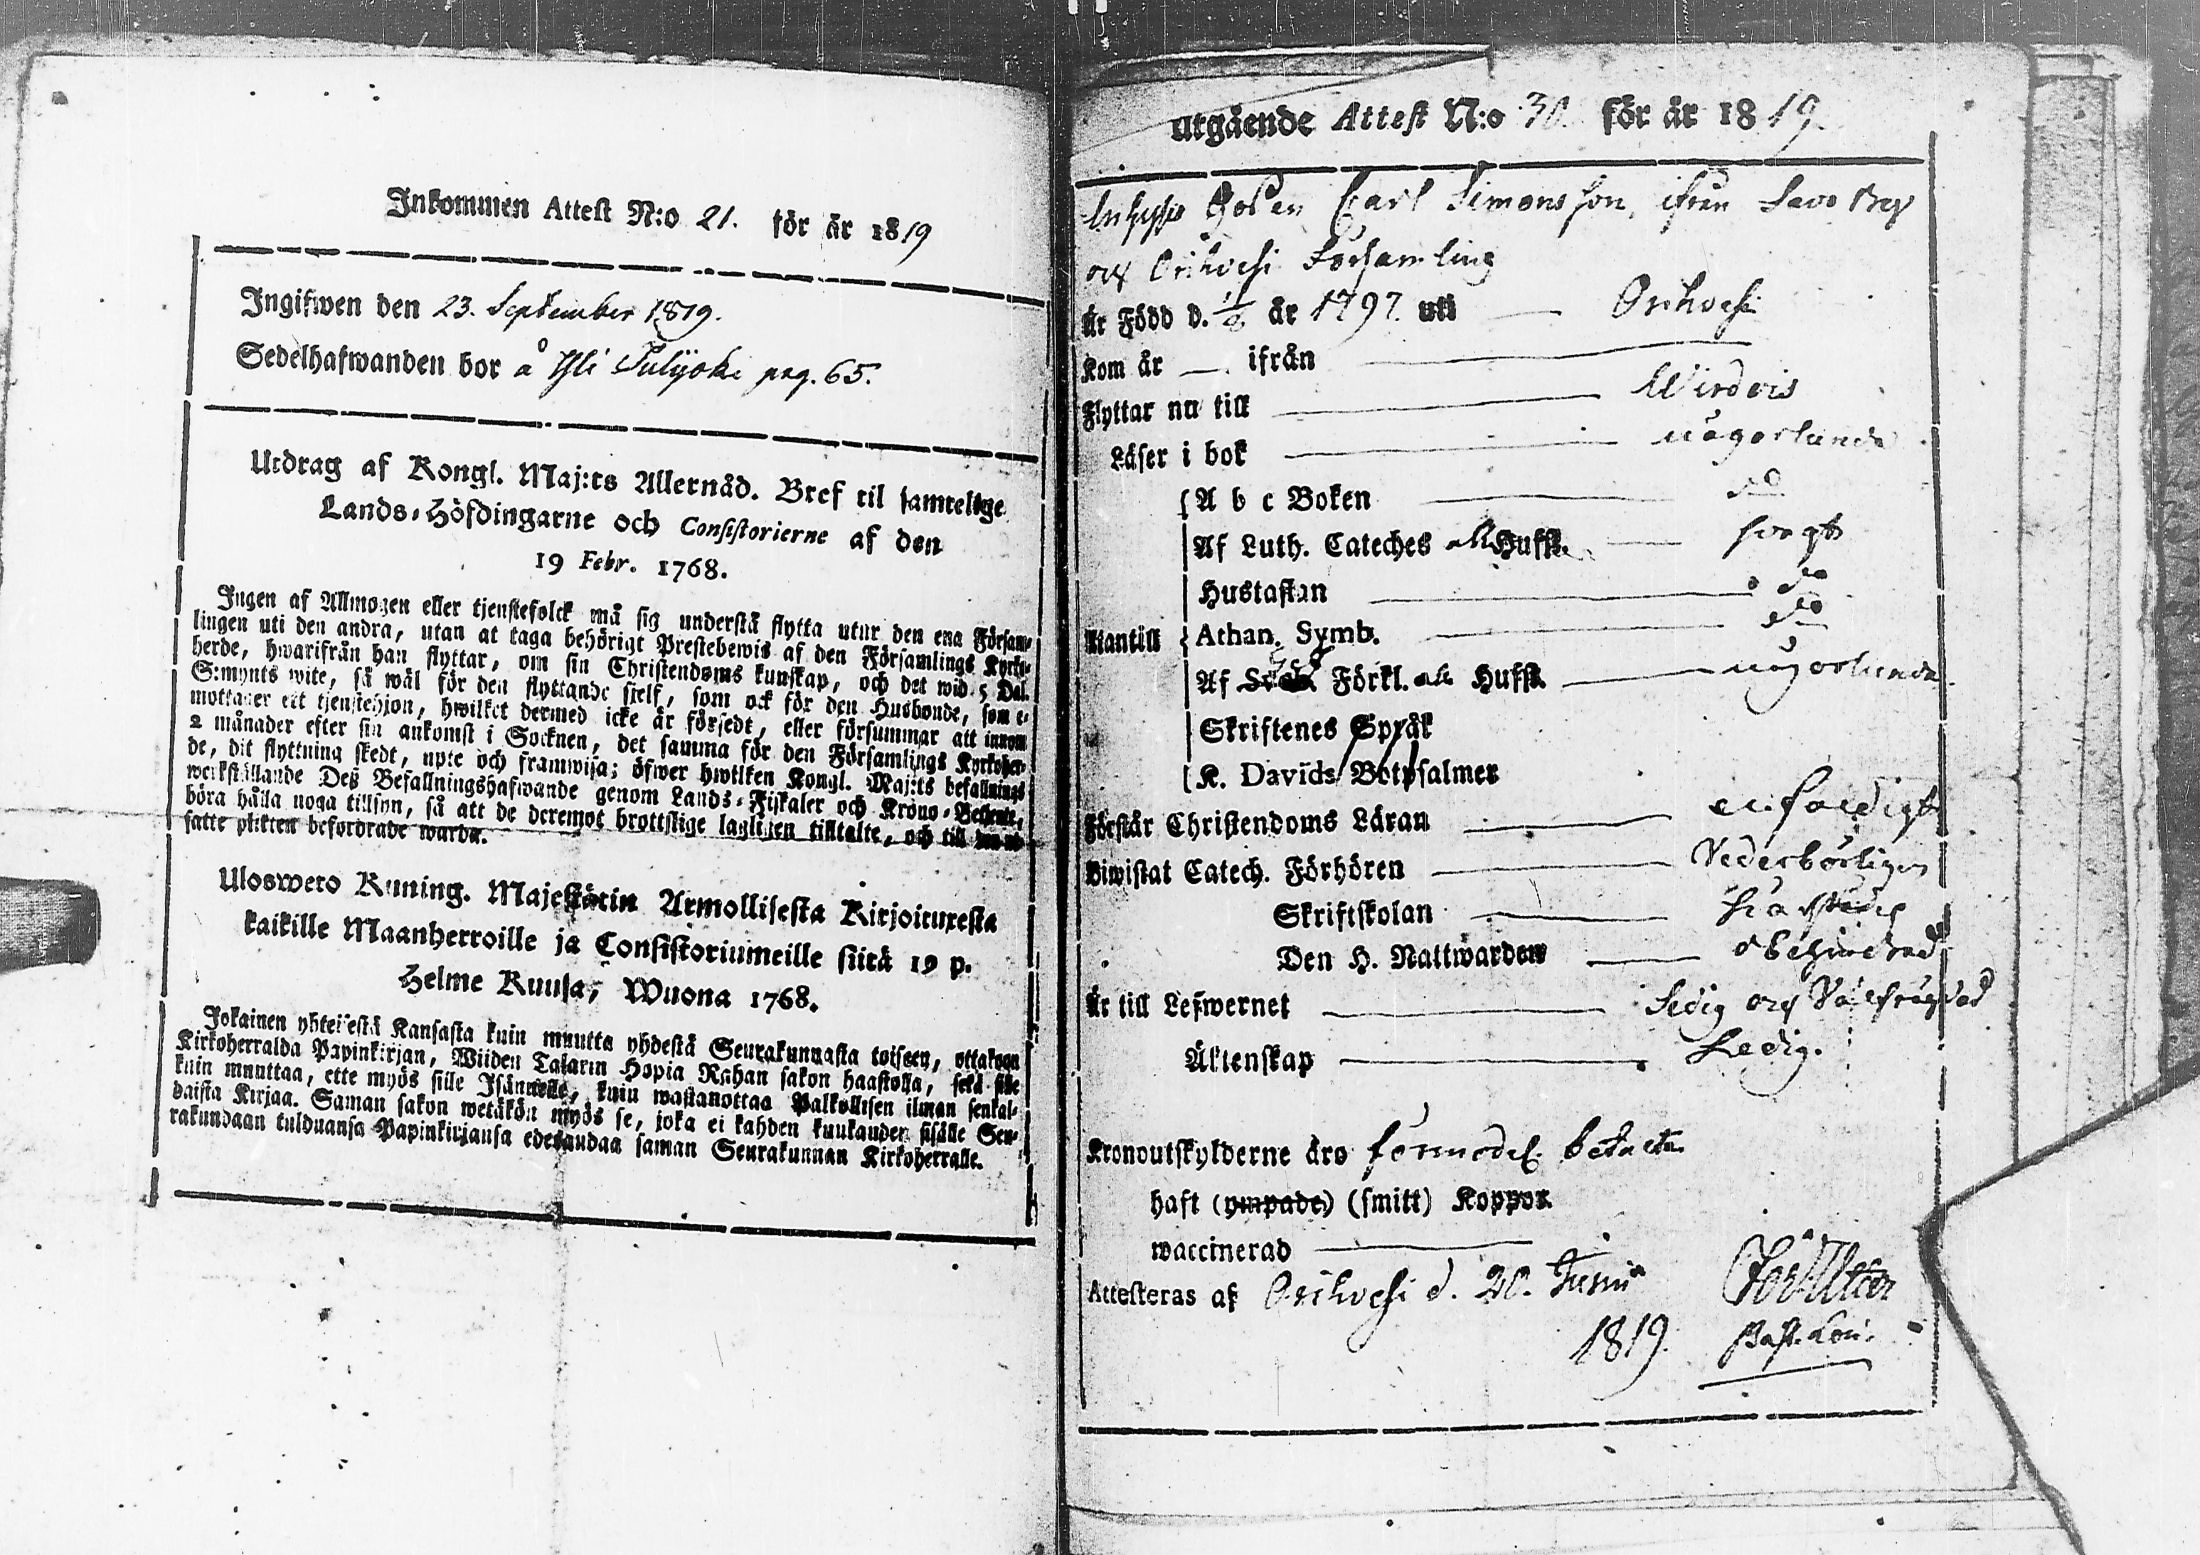 Inkommen Attest N:o 21. för år 1819
Ingifwen den 23. September 1819.
Sedelhafwanden bor å Yli pag. 65.
Utdrag af Kongl. Maj:ts Allernåd. Bref til samtelige
Lands-Höfdingarne och Consistorierne af den
19 Febr. 1768.
Ingen af Allmogen eller tjenstefolck må sig understå flytta utur den ena Försam-
lingen uti den andra, utan at taga behörigt Prestebewis af den Församlings Kyrko-
herde, hwarifrån han flyttar, om sin Christendoms kunskap, och det wid 5 Dal.
S:mynts wite, så wäl för den flyttande sjelf, som ock för den Husbonde, som e-
mottager ett tjenstehjon, hwilket dermed icke är försedt, eller försummar att innom
2 månader efter sin ankomst i Socknen, det samma för den Församlings Kyrkoher-
de, dit flyttning skedt, upte och framwisa; öfwer hwilken Kongl. Maj:ts befallnings
werkställande Deß Befallningshafwande genom Lands-Fiskaler och Krono-Betjente,
böra hålla noga tillsyn, så att de deremot brottslige lagligen tilltalte, och till
satte plikten befordrade warda.
Ulosweto Kuning. Majestätin Armollisesta Kirjoituxesta
kaikille Maanherroille ja Consistoriumeille siitä 19 p.
Helme Kuusa, Wuona 1768.
Jokainen yhteisestä Kansasta kuin muutta yhdestä Seurakunnasta toiseen, ottakoon
Kirkoherralda Papinkirjan, Wiiden Talarin Hopia Rahan sakon haastolla, sekä sille
kuin muuttaa, ette myös sille Isännelle, kuin wastanottaa Palkollisen ilman senkal-
daista Kirjaa. Saman sakon wetäkön myös se, joka ei kahden kuukauden sisälle Seu-
rakundaan tulduansa Papinkirjansa edesandaa saman Seurakunnan Kirkoherralle.
Utgående Attest N:o 30. för år 1819.
Carl Simonsson, ifrån Savo By
och Orihvesi Församling
Är Född d. 1/8 år 1797. uti Orihvesi
Kom år — ifrån
Flyttar nu till Wirdois
Läser i bok någorlunda
A b c Boken do
Af Luth. Cateches Husf. svagt
Hustaflan do
Utantill Athan. Symb. do
Af Förkl. Husf. någorlunda
Skriftenes Språk
K. Davids Botpsalmer
Förstår Christendoms Läran enfaldigt
Biwistat Catech. Förhören Vederbörligen
Skriftskolan
Den H. Nattwarden obehindrad
Är till Lefwernet Ledig och Välfrägdad
Äktenskap Ledig.
Kronoutskylderne äro förmodel. betalta
haft (ympade) (smitt) Koppor.
waccinerad
Attesteras af Orihvesi d. 20. Junii
1819. Past. Loci.